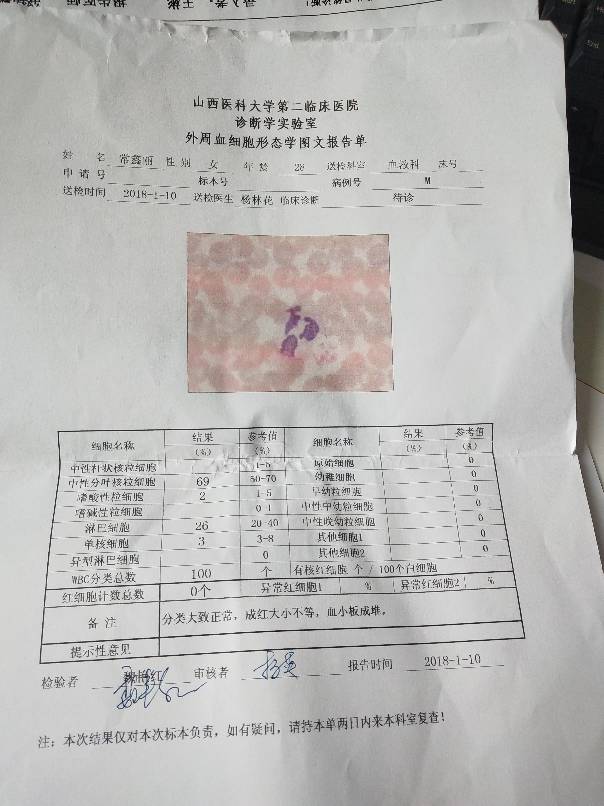 山西医科大学第二临床医院
诊断学实验室
外周血细胞形态学图文报告单
姓 名 常鑫丽 性别 女 年龄 28 送检科室 血液科 床号
申请号 标本号 病例号 M
送检时间 2018-1-10 送检医生 杨林花 临床诊断 待诊
细胞名称 结果(%) 参考值(%) 细胞名称 结果(%) 参考值(%)
中性杆状核粒细胞 1-5 原始细胞 0
中性分叶核粒细胞 69 50-70 幼稚细胞 0
嗜酸性粒细胞 2 1-5 早幼粒细胞 0
嗜碱性粒细胞 0-1 中性中幼粒细胞 0
淋巴细胞 26 20-40 中性晚幼粒细胞 0
单核细胞 3 3-8 其他细胞1 0
异型淋巴细胞 0 其他细胞2 0
WBC分类总数 100 个 有核红细胞 个 / 100个白细胞
红细胞计数总数 0个 异常红细胞1 % 异常红细胞2 %
备 注 分类大致正常,成红大小不等,血小板成堆。
提示性意见
检验者 审核者 报告时间 2018-1-10
注:本次结果仅对本次标本负责,如有疑问,请持本单两日内来本科室复查!